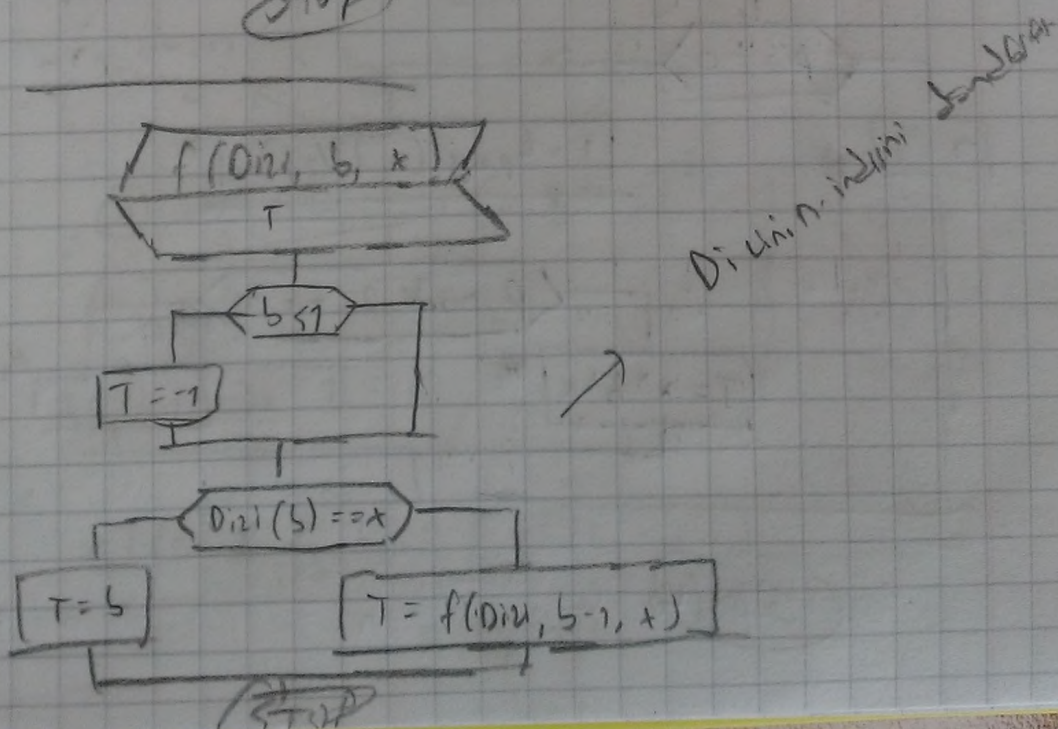 STOP
f(Dizi, b, x)
T
b<1
T=-1
Dizi(b)==x
T=b
T = f(Dizi, b-1, x)
STOP
Dizinin indisini